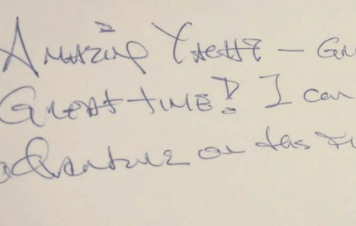 Amazing Yacht? – Gr
Great time! I can
adventure on this